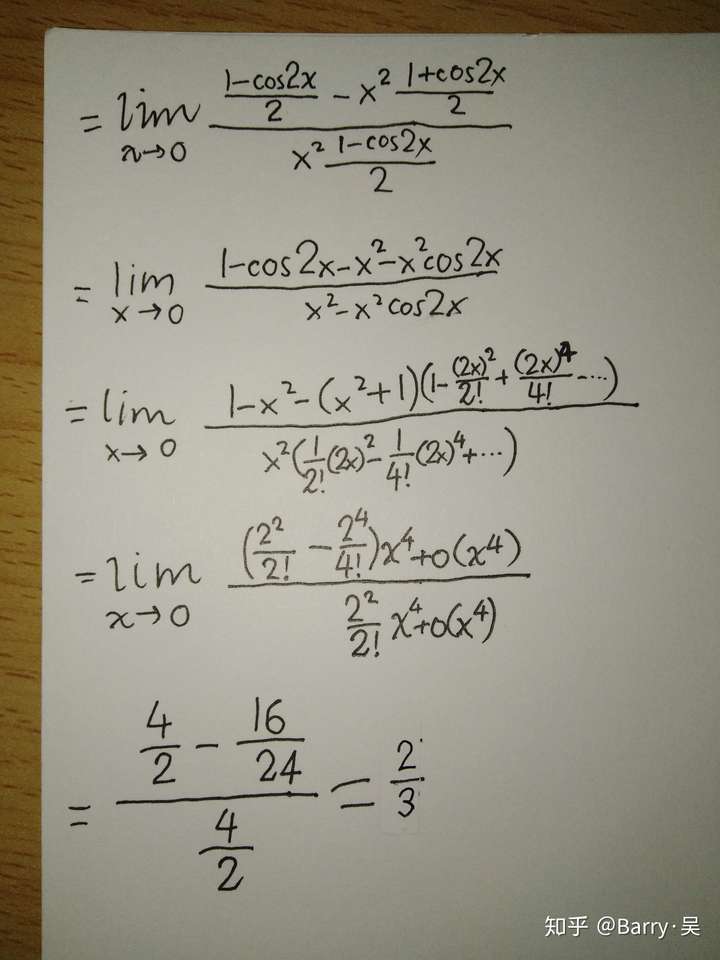 = lim x→0 ((1-cos2x)/2 - x² (1+cos2x)/2) / (x² (1-cos2x)/2)
= lim x→0 (1-cos2x-x²-x²cos2x) / (x²-x²cos2x)
= lim x→0 (1-x²-(x²+1)(1-(2x)²/2!+(2x)⁴/4!-⋯)) / (x²(1/2!(2x)²-1/4!(2x)⁴+⋯))
= lim x→0 ((2²/2! - 2⁴/4!)x⁴+o(x⁴)) / (2²/2! x⁴+o(x⁴))
= (4/2 - 16/24) / (4/2) = 2/3
知乎 @Barry·吴